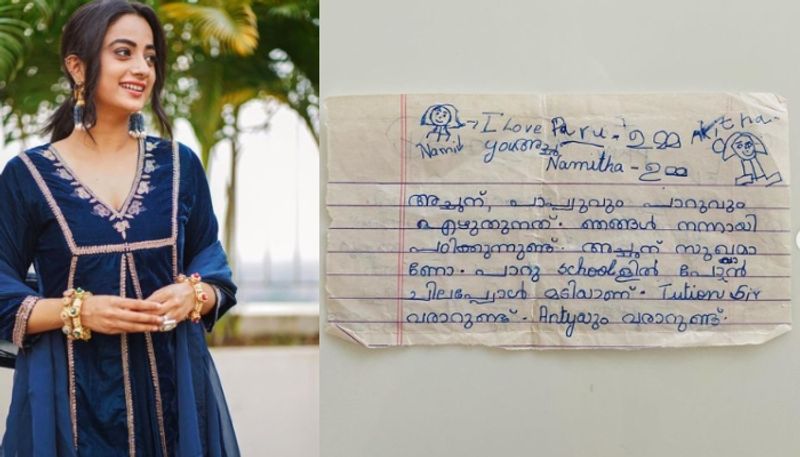 I Love Paru - ഉമ്മ
Namit you അച്ഛൻ
Namitha - ഉമ്മ
അച്ഛന്, പാപ്പുവും പാറുവും
എഴുതുന്നത്. ഞങ്ങൾ നന്നായി
പഠിക്കുന്നുണ്ട്. അച്ഛന് സുഖമാ
ണോ. പാറു schoolളിൽ പോവാൻ
ചിലപ്പോൾ മടിയാണ്. Tution Sir
വരാറുണ്ട്. Antyയും വരാറുണ്ട്.